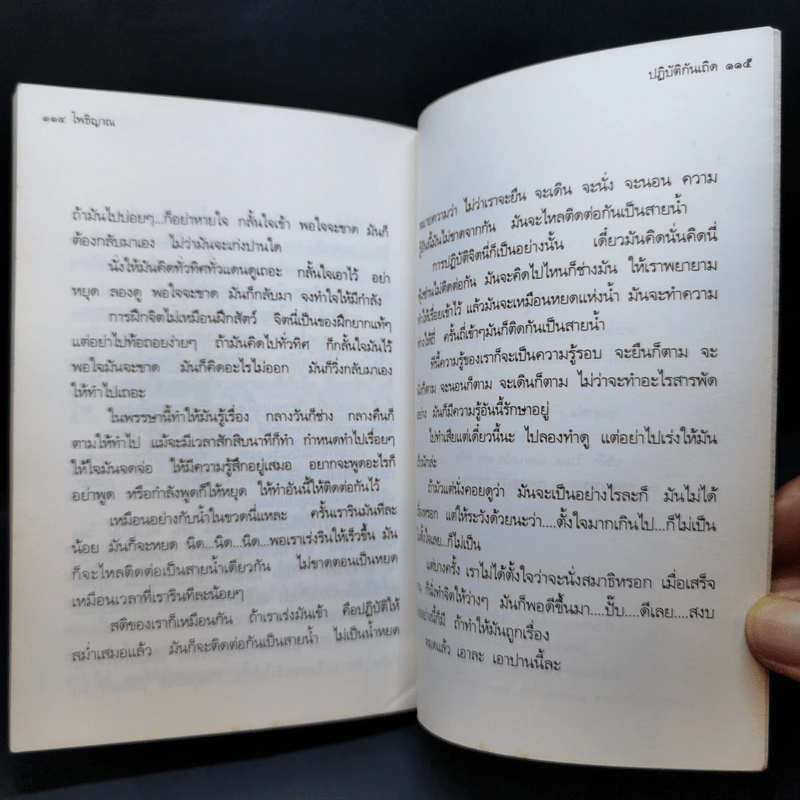 ๑๑๔ โพธิญาณ
ถ้ามันไปบ่อยๆ...ก็อย่าหายใจ กลั้นใจเข้า พอใจจะขาด มันก็
ต้องกลับมาเอง ไม่ว่ามันจะเก่งปานใด
นั่งให้มันคิดทั่วทิศทั่วแดนดูเถอะ กลั้นใจเอาไว้ อย่า
หยุด ลองดู พอใจจะขาด มันก็กลับมา จงทำใจให้มีกำลัง
การฝึกจิตไม่เหมือนฝึกสัตว์ จิตนี่เป็นของฝึกยากแท้ๆ
แต่อย่าไปท้อถอยง่ายๆ ถ้ามันคิดไปทั่วทิศ ก็กลั้นใจมันไว้
พอใจมันจะขาด มันก็คิดอะไรไม่ออก มันก็วิ่งกลับมาเอง
ให้ทำไปเถอะ
ในพรรษานี้ทำให้มันรู้เรื่อง กลางวันก็ช่าง กลางคืนก็
ตามให้ทำไป แม้จะมีเวลาสักสิบนาทีก็ทำ กำหนดทำไปเรื่อยๆ
ให้ใจมันจดจ่อ ให้มีความรู้สึกอยู่เสมอ อยากจะพูดอะไรก็
อย่าพูด หรือกำลังพูดก็ให้หยุด ให้ทำอันนี้ให้ติดต่อกันไว้
เหมือนอย่างกับน้ำในขวดนี่แหละ ครั้นเรารินมันทีละ
น้อย มันก็จะหยด นิด...นิด...นิด...พอเราเร่งรินให้เร็วขึ้น มัน
ก็จะไหลติดต่อเป็นสายน้ำเดียวกัน ไม่ขาดตอนเป็นหยด
เหมือนเวลาที่เรารินทีละน้อยๆ
สติของเราก็เหมือนกัน ถ้าเราเร่งมันเข้า คือปฏิบัติให้
สม่ำเสมอแล้ว มันก็จะติดต่อกันเป็นสายน้ำ ไม่เป็นน้ำหยด
ปฏิบัติกันเถิด ๑๑๕
หมายความว่า ไม่ว่าเราจะยืน จะเดิน จะนั่ง จะนอน ความ
รู้อันนี้มันไม่ขาดจากกัน มันจะไหลติดต่อกันเป็นสายน้ำ
การปฏิบัติจิตนี่ก็เป็นอย่างนั้น เดี๋ยวมันคิดนั่นคิดนี่
ฟุ้งซ่านไม่ติดต่อกัน มันจะคิดไปไหนก็ช่างมัน ให้เราพยายาม
ทำให้เรื่อยเข้าไว้ แล้วมันจะเหมือนหยดแห่งน้ำ มันจะทำความ
ห่างให้ถี่ ครั้นถี่เข้าๆมันก็ติดกันเป็นสายน้ำ
ทีนี้ความรู้ของเราก็จะเป็นความรู้รอบ จะยืนก็ตาม จะ
นั่งก็ตาม จะนอนก็ตาม จะเดินก็ตาม ไม่ว่าจะทำอะไรสารพัด
อย่าง มันก็มีความรู้อันนี้รักษาอยู่
ไปทำเสียแต่เดี๋ยวนี้นะ ไปลองทำดู แต่อย่าไปเร่งให้มัน
เร็วนักล่ะ
ถ้ามัวแต่นั่งคอยดูว่า มันจะเป็นอย่างไรละก็ มันไม่ได้
เรื่องหรอก แต่ให้ระวังด้วยนะว่า....ตั้งใจมากเกินไป...ก็ไม่เป็น
ไม่ตั้งใจเลย...ก็ไม่เป็น
แต่บางครั้ง เราไม่ได้ตั้งใจว่าจะนั่งสมาธิหรอก เมื่อเสร็จ
งาน ก็นั่งทำจิตให้ว่างๆ มันก็พอดีขึ้นมา....ปั๊บ....ดีเลย....สงบ
อย่างนี้ก็มี ถ้าทำให้มันถูกเรื่อง
หมดแล้ว เอาละ เอาปานนี้ละ